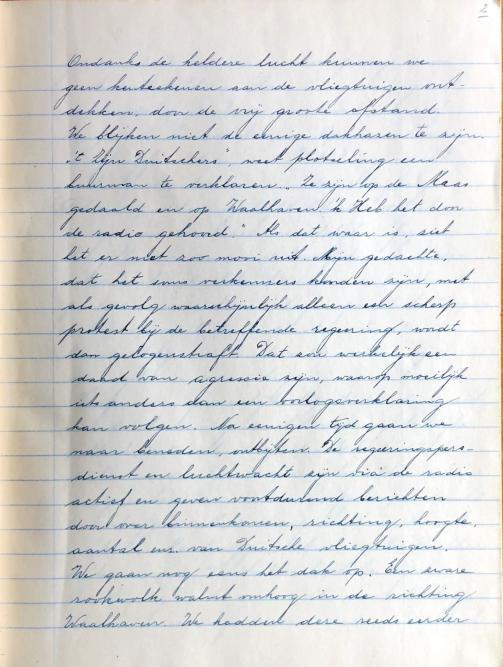 2
Ondanks de heldere lucht kunnen we
geen kenteekenen aan de vliegtuigen ont-
dekken, door de vrij groote afstand.
We blijken niet de eenige dakhazen te zijn.
"'t Zijn Duitschers", weet plotseling een
buurman te verklaren. "Ze zijn op de Maas
gedaald en op Waalhaven. 'k Heb het door
de radio gehoord." Als dat waar is, ziet
het er niet zoo mooi uit. Mijn gedachte,
dat het soms verkenners konden zijn, met
als gevolg waarschijnlijk alleen een scherp
protest bij de betreffende regeering, wordt
dan gelogenstraft. Dat zou werkelijk een
daad van agressie zijn, waarop moeilijk
iets anders dan een oorlogsverklaring
kan volgen. Na eenigen tijd gaan we
naar beneden, ontbijten. De regeeringspers-
dienst en luchtwacht zijn via de radio
actief en geven voortdurend berichten
door over binnenkomen, richting, hoogte,
aantal enz. van Duitsche vliegtuigen.
We gaan nog eens het dak op. Een zware
rookwolk walmt omhoog in de richting
Waalhaven. We hadden deze reeds eerder